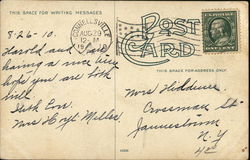 THIS SPACE FOR WRITING MESSAGES
POST
CARD
THIS SPACE FOR ADDRESS ONLY
AUG 29
12-M
8-26-10.
Harold and
having a nice time
hope you are both
well.
With Love
Mrs Hoyt Miller
Mrs
Crossman St
Jamestown
N.Y